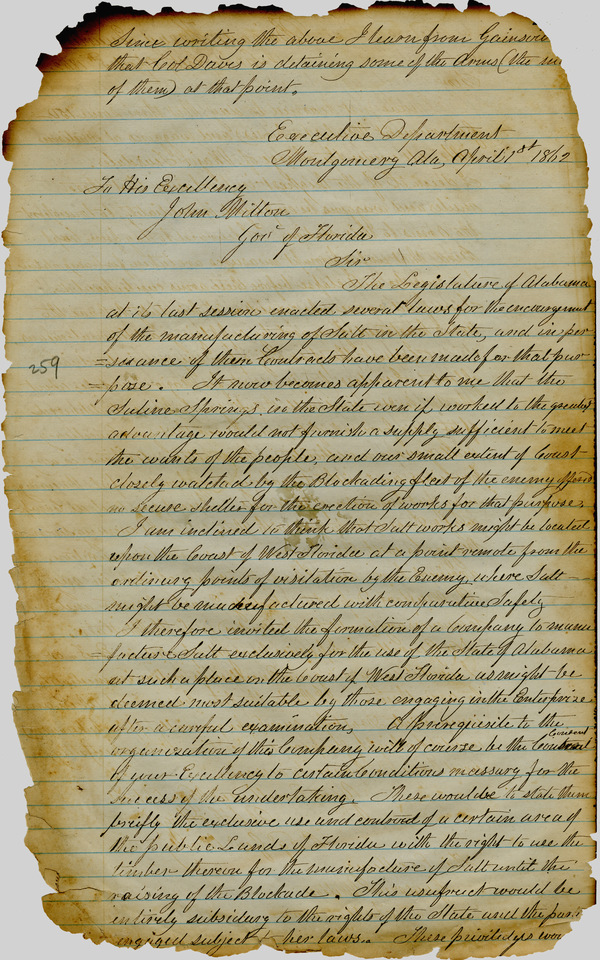 Since writing the above I learn from Gainsvi
that Col Davis is detaining some of the Arms (the
of them) at that point.
Executive Department
Montgomery Ala, April 1st 1862
To His Excellency
John Milton
Gov of Florida
Sir
The Legislature of Alabama
at its last session enacted several laws for the encouragement
of the manufacturing of Salt in the State, and in per-
=suance of them Contracts have been made for that pur
=pose. It now becomes apparent to me that the
259
Saline Springs, in the State even if worked to the greatest
advantage would not furnish a supply sufficient to meet
the wants of the people, and our small extent of Coast
closely watched by the Blockading fleet of the enemy affords
no secure shelter for the erection of works for that purpose.
I am inclined to think that Salt works might be located
upon the Coast of West Florida at a point remote from the
ordinary points of visitation by the Enemy, where Salt
might be manufactured with comparative Safety
I therefore invited the formation of a Company to manu
=facture Salt exclusively for the use of the State of Alabama
at such a place on the Coast of West Florida as might be
deemed most suitable by those engaging in the Enterprize
after a careful examination, A prerequisite to the
organization of this Company will of course be the Consent
of your Excellency to certain Conditions necessary for the
success of the undertaking. These would be to state them
briefly the exclusive use and control of a certain area of
the public Lands of Florida with the right to use the
timber thereon for the manufacture of Salt until the
raising of the Blockade. This usufruct would be
entirely subsidary to the rights of the State and the
engaged subject to her laws. These priviledges wou